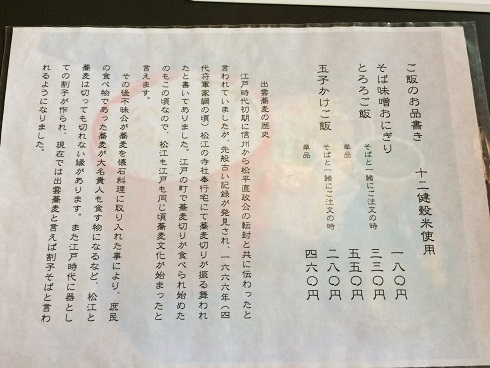 ご飯のお品書き　十二健穀米使用
そば味噌おにぎり　一八〇円
とろろご飯　そばと一緒にご注文の時　三三〇円
単品　五五〇円
玉子かけご飯　そばと一緒にご注文の時　二八〇円
単品　四六〇円
出雲蕎麦の歴史
江戸時代初期に信州から松平直政公の転封と共に伝わったと
言われていましたが、先般古い記録が発見され、一六六六年（四
代将軍家綱の頃）松江の寺社奉行宅にて蕎麦切りが振る舞われ
たと書いてありました。江戸の町で蕎麦切りが食べられ始めた
のもこの頃なので、松江も江戸も同じ頃蕎麦文化が始まったと
言えます。
その後不昧公が蕎麦を懐石料理に取り入れた事により、庶民
の食べ物であった蕎麦が大名貴人も食す物になるなど、松江と
蕎麦は切っても切れない縁があります。また江戸時代に器とし
ての割子が作られ、現在では出雲蕎麦と言えば割子そばと言わ
れるようになりました。